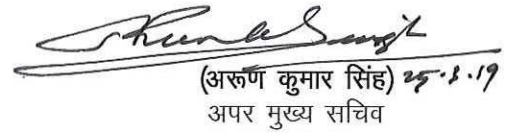 (अरूण कुमार सिंह) 25.3.19
अपर मुख्य सचिव